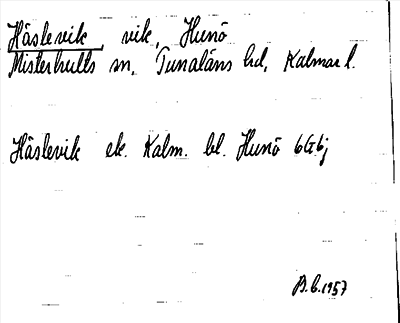 Häslevik, vik, Hunö
Misterhults sn, Tunaläns hd, Kalmar l.
Häslevik ek. Kalm. bl. Hunö 6G6j
B.G.1957